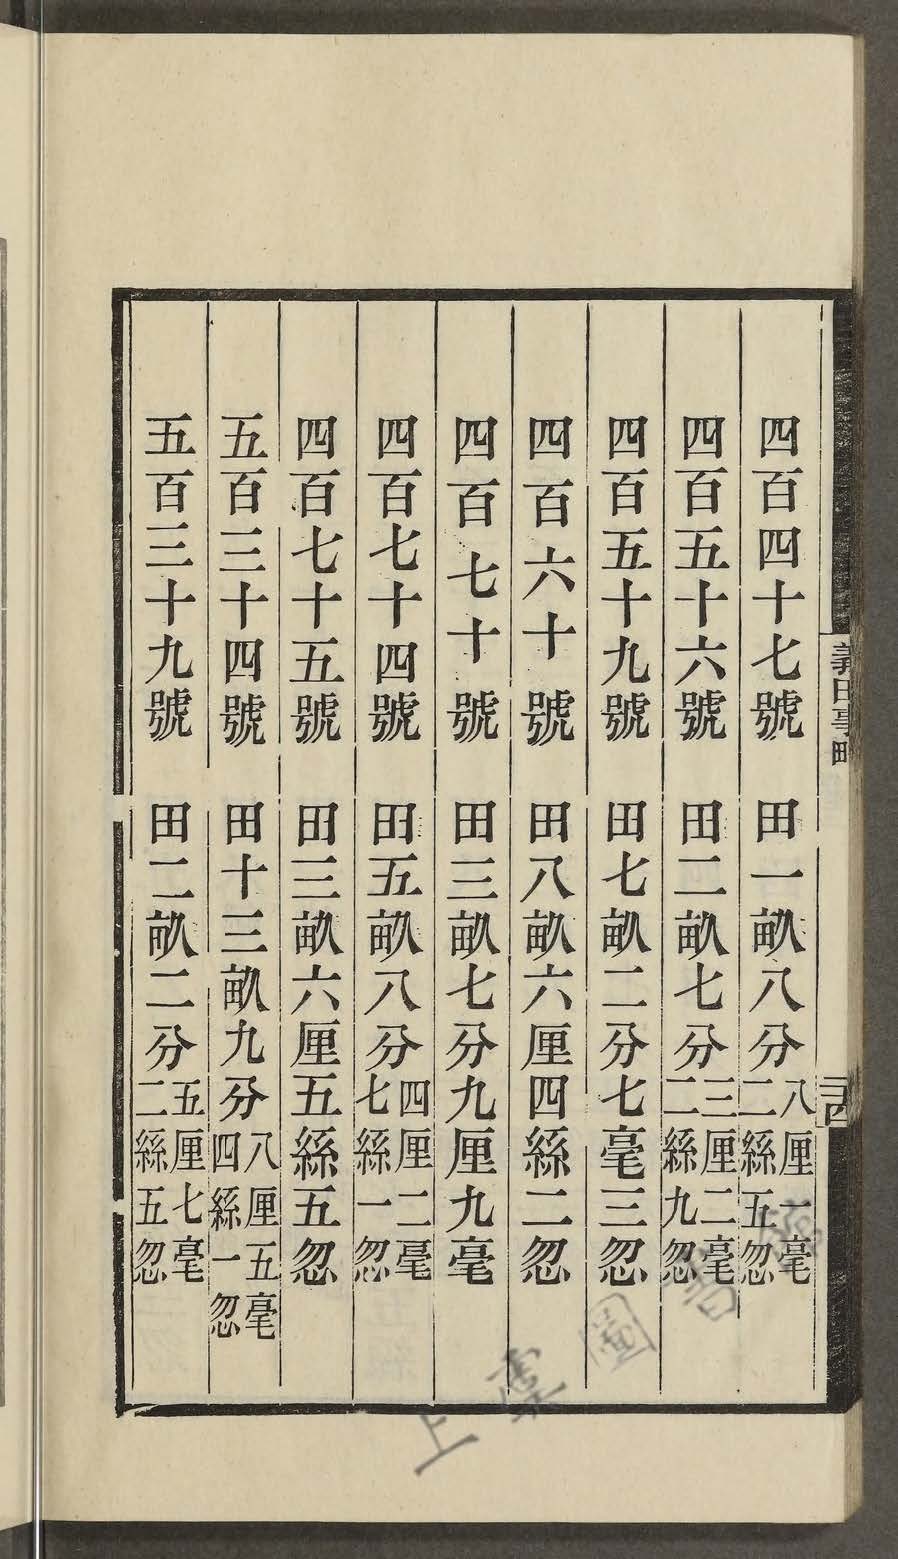 四百四十七號 田一畝八分八厘一毫二絲五忽
四百五十六號 田二畝七分三厘二毫二絲九忽
四百五十九號 田七畝二分七毫三忽
四百六十號 田八畝六厘四絲二忽
四百七十號 田三畝七分九厘九毫
四百七十四號 田五畝八分四厘二毫七絲一忽
四百七十五號 田三畝六厘五絲五忽
五百三十四號 田十三畝九分八厘五毫四絲一忽
五百三十九號 田二畝二分五厘七毫二絲五忽
義田事略
上虞圖書館